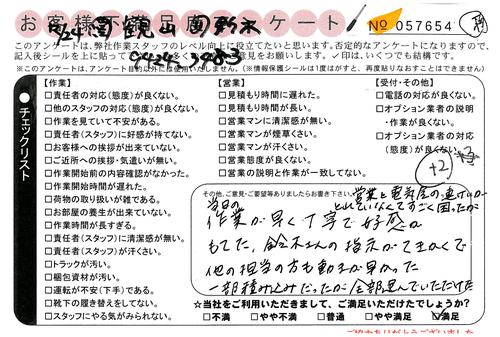 お客様不満足度アンケート
No 057654
このアンケートは、弊社作業スタッフのレベル向上に役立てたいと思います。否定的なアンケートになりますので、
記入後シールを上に貼って
意見をお願いします。✓印は、いくつでも結構です。
※このアンケートは、アンケート目的以外には使用いたしません。(※情報保護シールは1度はがすと、再度貼りなおすことはできません。)
チェックリスト
【作業】
□責任者の対応(態度)が良くない。
□他のスタッフの対応(態度)が良くない。
□作業を見ていて不安がある。
□責任者(スタッフ)に好感が持てない。
□お客様への挨拶が出来ていない。
□ご近所への挨拶・気遣いが無い。
□作業開始前の内容確認がなかった。
□作業開始時間が遅れた。
□荷物の取り扱いが雑である。
□お部屋の養生が出来ていない。
□作業時間が長すぎる。
□責任者(スタッフ)に清潔感が無い。
□責任者(スタッフ)が汗くさい。
□トラックが汚い。
□梱包資材が汚い。
□運転が不安(下手)である。
□靴下の履き替えをしてない。
□スタッフにやる気がみられない。
【営業】
□見積もり時間に遅れた。
□見積もり時間が長い。
□営業マンに清潔感が無い。
□営業マンが煙草くさい。
□営業マンが汗くさい。
□営業態度が良くない。
□営業の説明と作業が一致してない。
【受付・その他】
□電話の対応が良くない。
□オプション業者の説明
・作業が良くない。
□オプション業者の対応
(態度)が良くない
+2
その他、ご意見・ご要望等ありましたらお書き下さい。
営業と電気屋の連けいが
とれていなくてすごく困ったが
当日の
作業が早く丁寧で好感が
もてた。鈴木さんの指示がてきかくで
他の担当の方も動きが早かった
一部積み込みだったが全部運んでいただけた
☆当社をご利用いただきまして、ご満足いただけたでしょうか?
□不満 □やや不満 □普通 □やや満足 ☑満足
ご協力ありがとうございました